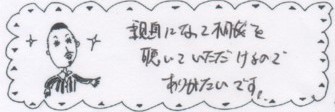 親身になって相談を
聴いていただけるので
ありがたいです。